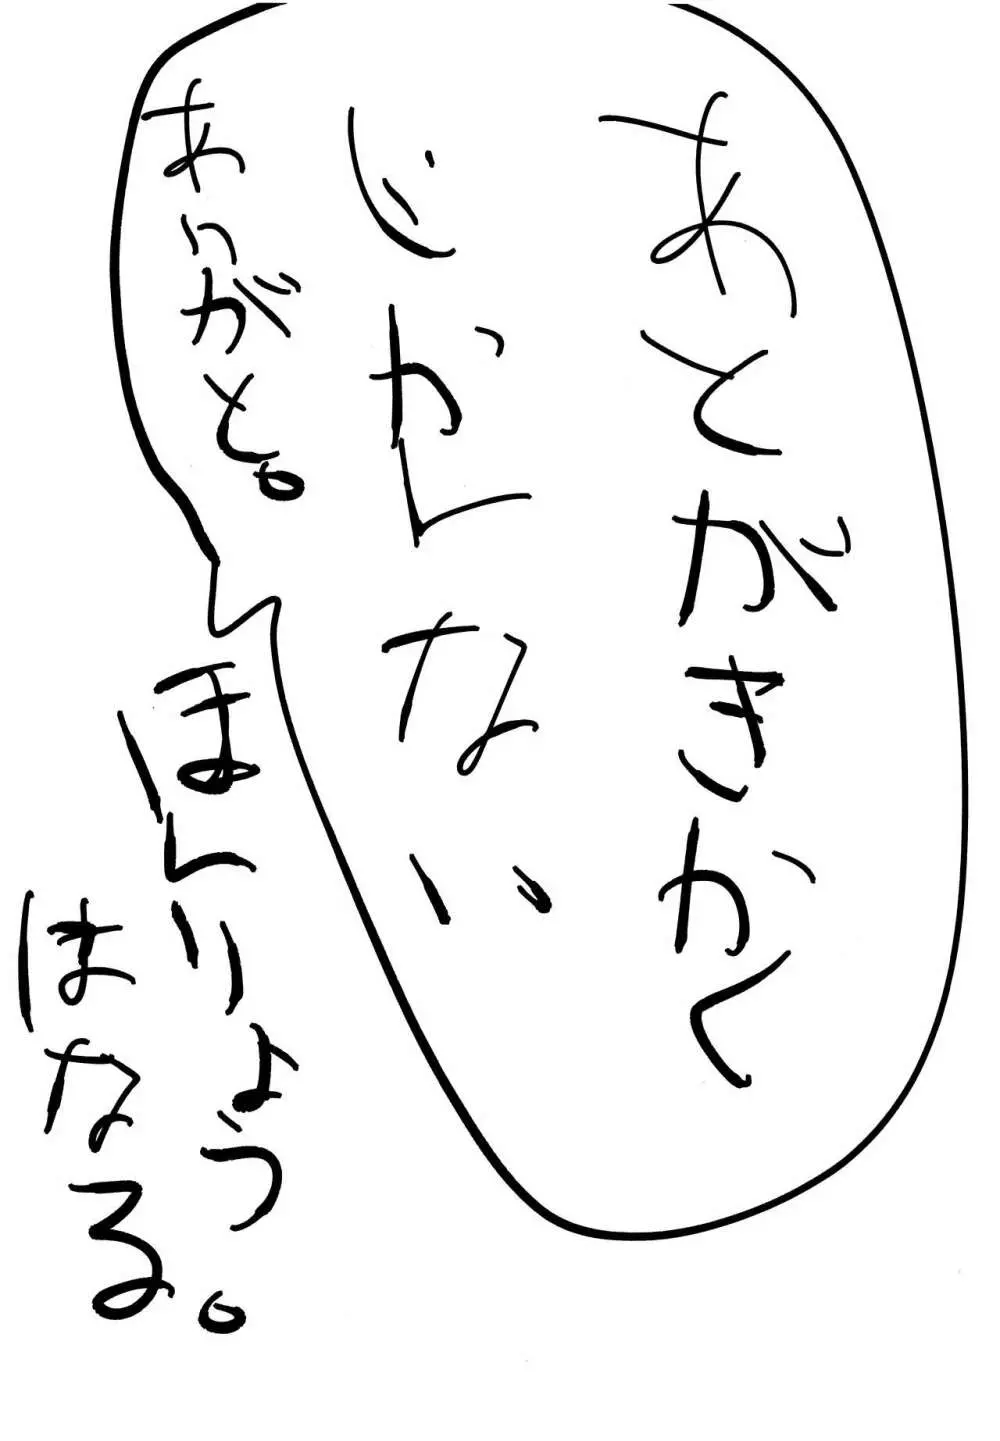 あとがきかく
じかんない
ありがと。
ほしりょう。
はなる